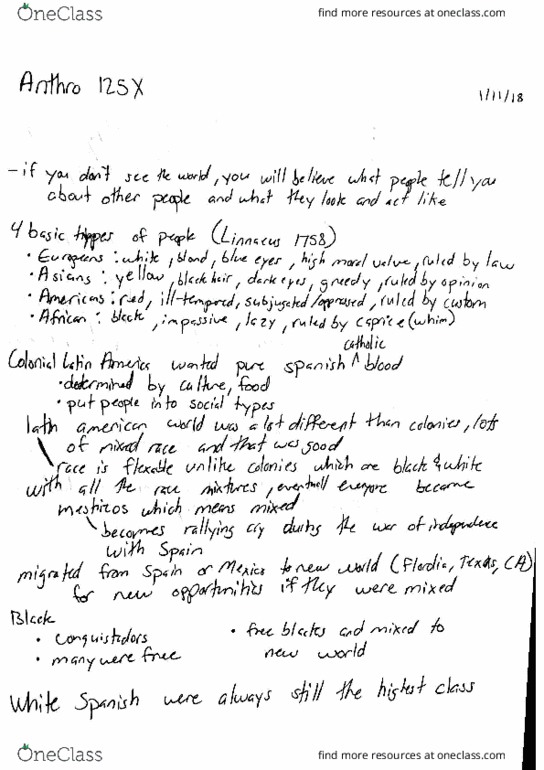 OneClass
find more resources at oneclass.com
Anthro 125X
1/11/18
- if you don't see the world, you will believe what people tell you
about other people and what they look and act like
4 basic types of people (Linnaeus 1758)
• Europeans: white, blond, blue eyes, high moral value, ruled by law
• Asians: yellow, black hair, dark eyes, greedy, ruled by opinion
• Americans: red, ill-tempered, subjugated/oppressed, ruled by custom
• African: black, impassive, lazy, ruled by caprice (whim)
catholic
Colonial Latin America wanted pure spanish ^ blood
• determined by culture, food
• put people into social types
latin american world was a lot different than colonies, lots
of mixed race and that was good
race is flexable unlike colonies which are black & white
with all the race mixtures, eventuall everyone became
mestizos which means mixed
becomes rallying cry during the war of independence
with Spain
migrated from Spain or Mexico to new world (Flordia, Texas, CA)
for new opportunities if they were mixed
Black
• conquistadors
• many were free
• free blacks and mixed to
new world
White Spanish were always still the highest class
OneClass
find more resources at oneclass.com